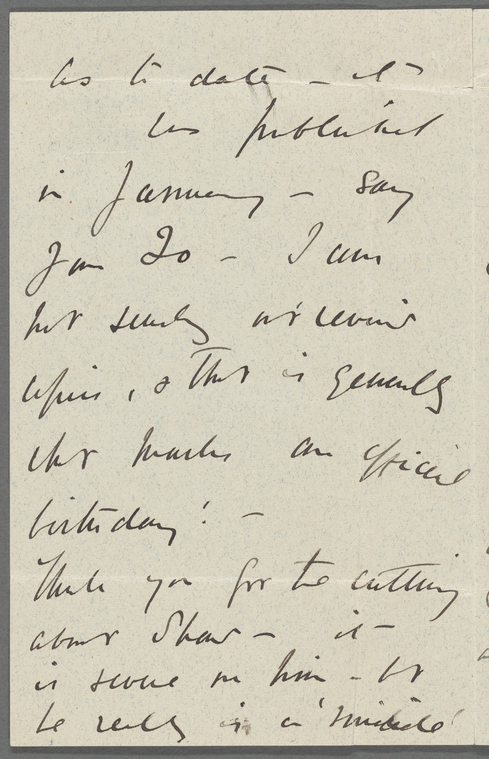 As to date – it
was published
in January – say
Jan 20 – I am
not sending out review
copies, & that is generally
what marks an official
birthday! –
Thank you for the cutting
about Shaw – it
is severe on him – but
he really is a